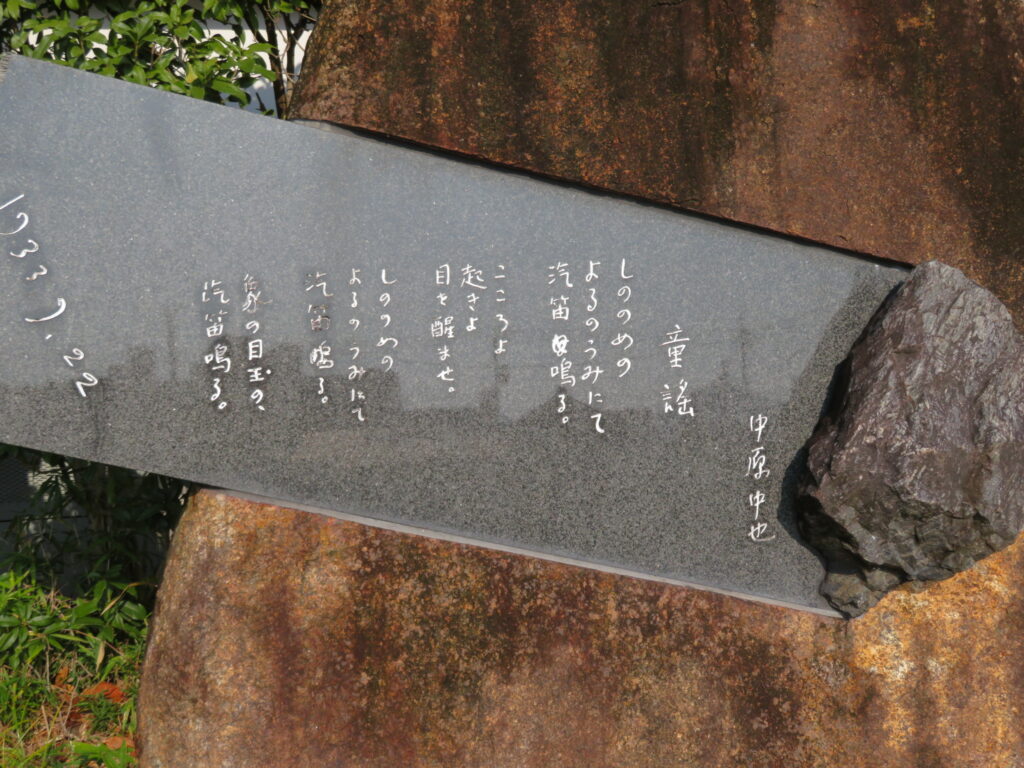 中原中也
童謡
しののめの
よるのうみにて
汽笛鳴る。
こころよ
起きよ
目を醒ませ。
しののめの
よるのうみにて
汽笛鳴る。
象の目玉の、
汽笛鳴る。
1933.9.22